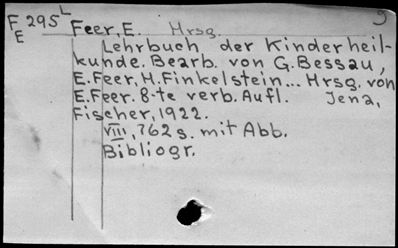 F 295 L
E
Feer, E. Hrsg.
Lehrbuch der Kinderheil-
kunde. Bearb. von G. Bessau,
E. Feer, H. Finkelstein... Hrsg. von
E. Feer. 8-te verb. Aufl. Jena,
Fischer, 1922.
VIII, 762 s. mit Abb.
Bibliogr.